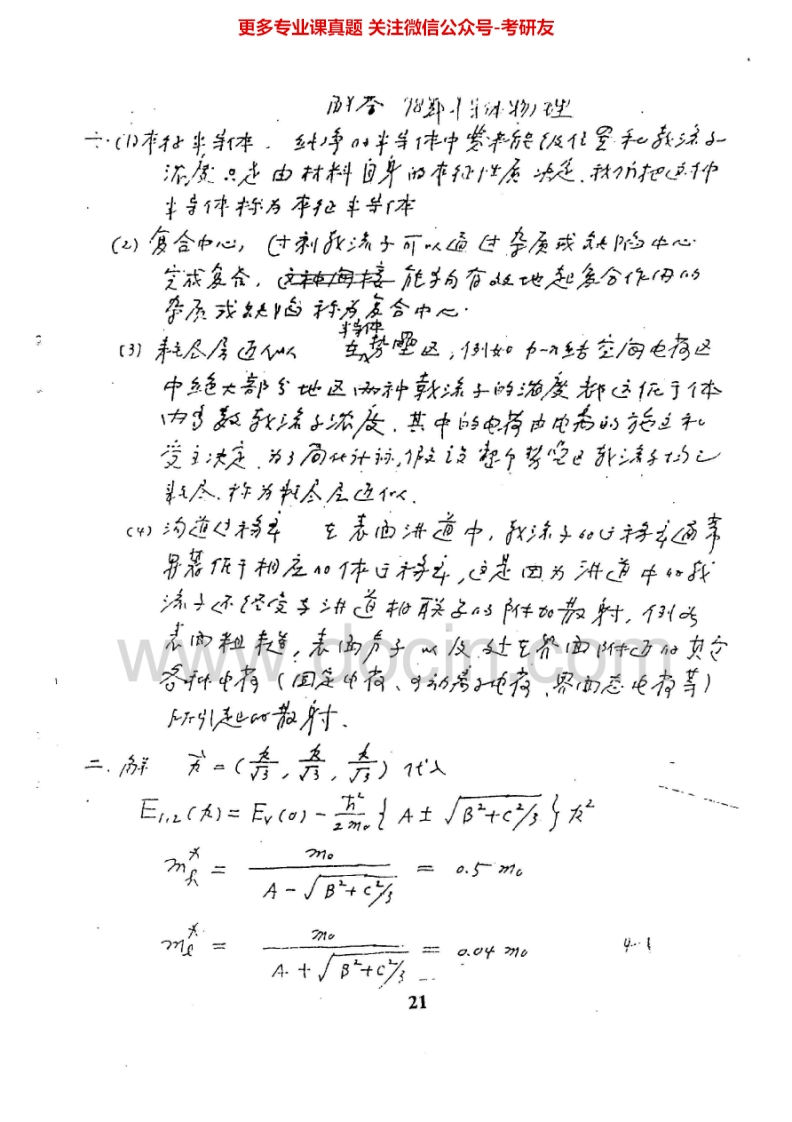 更多专业课真题 关注微信公众号-考研友
98 半导体物理
一. (1) 本征半导体. 纯净的半导体中费米能级位置和载流子
浓度只是由材料自身的本征性质决定, 我们把这种
半导体称为本征半导体
(2) 复合中心, 过剩载流子可以通过杂质或缺陷中心
完成复合, 这种间接 能够有效地起复合作用的
杂质或缺陷称为复合中心.
(3) 耗尽层近似 在半导体势垒区, 例如 p-n结空间电荷区
中绝大部分地区两种载流子的浓度都远低于体
内多数载流子浓度, 其中的电荷由电离的施主和
受主决定, 为了简化计算, 假设整个势垒区载流子均已
耗尽. 称为耗尽层近似.
(4) 沟道迁移率 在表面沟道中, 载流子的迁移率通常
显著低于相应的体迁移率, 这是因为沟道中的载
流子还经受与沟道相联系的附加散射, 例如
表面粗糙, 表面声子以及处在界面附近的其它
各种电荷 (固定电荷、可动离子电荷、界面态电荷等)
所引起的散射.
www.docin.com
二. 解 k⃗ = (k/√3, k/√3, k/√3) 代入
E1,2(k) = Ev(0) - ħ²/2m₀ { A ± √(B²+C²/3) } k²
m*h = m₀ / (A - √(B²+C²/3)) = 0.5 m₀
m*l = m₀ / (A + √(B²+C²/3)) = 0.04 m₀
21